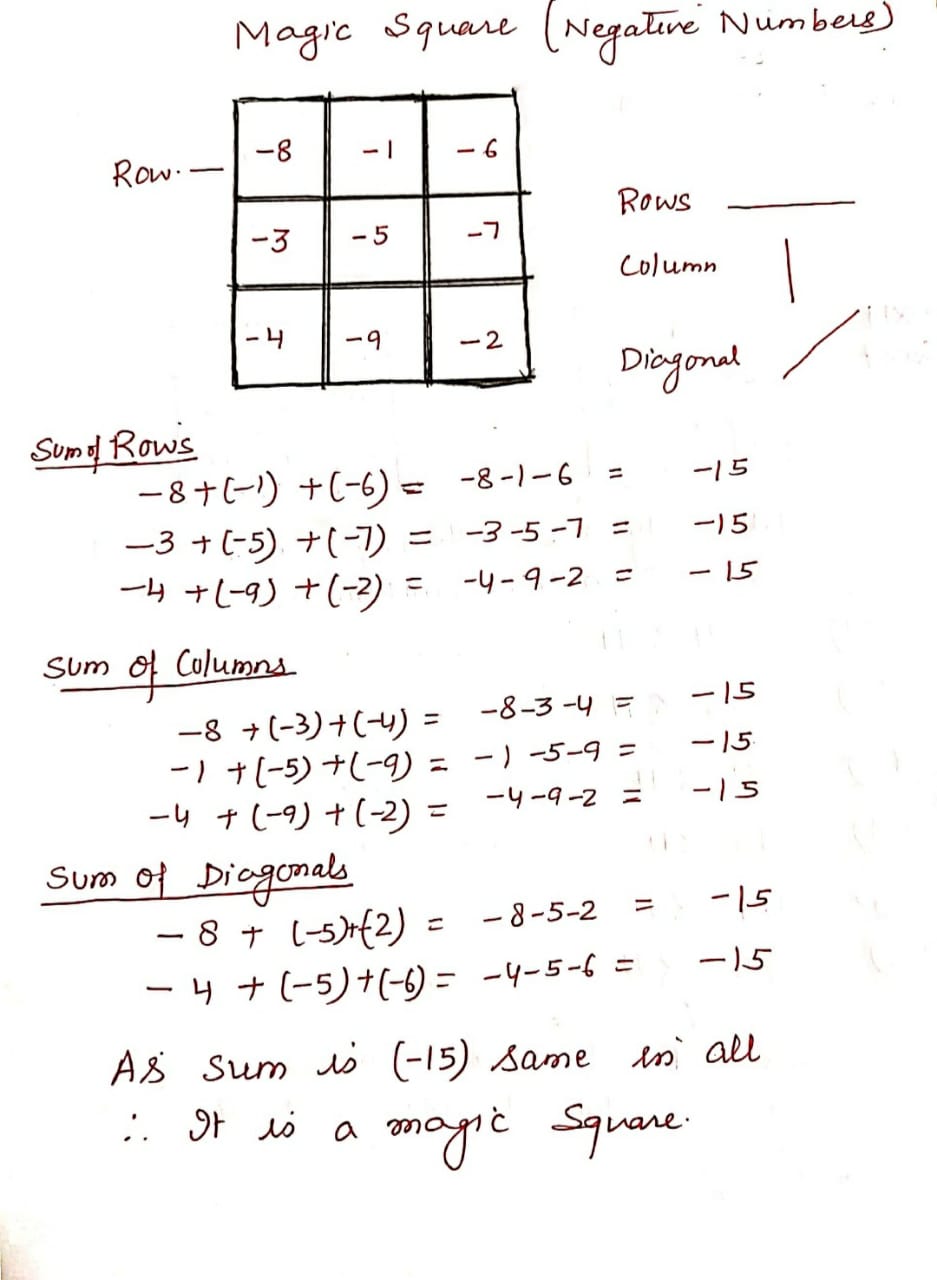 Magic Square (Negative Numbers)
Row. —
-8 -1 -6
-3 -5 -7
-4 -9 -2
Rows
Column
Diagonal
Sum of Rows
-8+(-1) +(-6) = -8-1-6 = -15
-3 +(-5) +(-7) = -3-5-7 = -15
-4 +(-9) +(-2) = -4-9-2 = -15
Sum of Columns
-8 +(-3)+(-4) = -8-3-4 = -15
-1 +(-5)+(-9) = -1-5-9 = -15
-4 +(-9)+(-2) = -4-9-2 = -15
Sum of Diagonals
-8 + (-5)+(-2) = -8-5-2 = -15
-4 +(-5)+(-6) = -4-5-6 = -15
As Sum is (-15) same in all
∴ It is a magic Square.